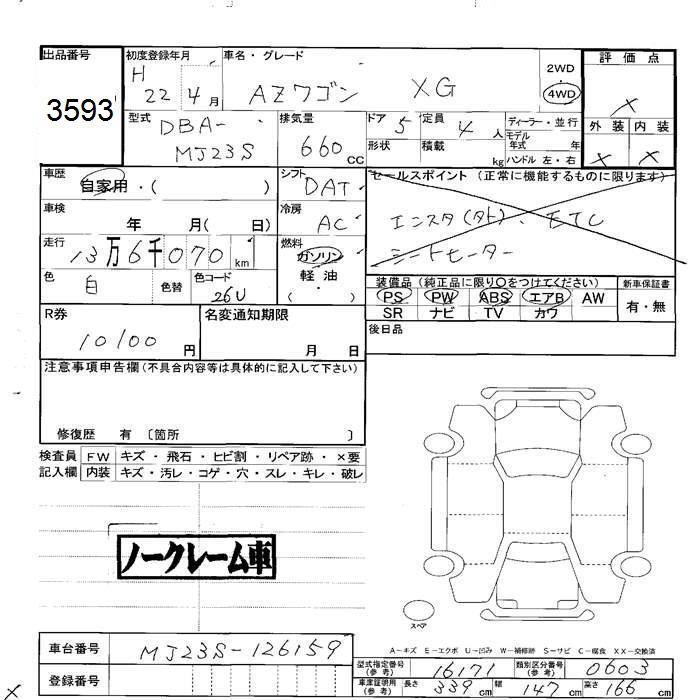 出品番号 初度登録年月 車名・グレード 評価点
3593 H 22 4月 AZワゴン XG 2WD 4WD X
型式 DBA-MJ23S 排気量 660 CC ドア 5 形状 定員 4人 積載 kg ディーラー・並行 モデル年式 年 ハンドル 左・右 外装 内装 X X
車歴 自家用・( ) シフト DAT セールスポイント (正常に機能するものに限ります)
車検 年 月( 日) 冷房 AC エンスタ(タト)、ETC
走行 13万6千070km 燃料 ガソリン 軽油 ・( ) シートヒーター
色 白 色替 色コード 26U 装備品 (純正品に限り○をつけてください) 新車保証書
PS PW ABS エアB AW 有・無
SR ナビ TV カワ
R券 10100円 名変通知期限 月 日 後日品
注意事項申告欄(不具合内容等は具体的に記入して下さい)
修復歴 有 〔箇所 〕
検査員 FW キズ・飛石・ヒビ割・リペア跡・×要
記入欄 内装 キズ・汚レ・コゲ・穴・スレ・キレ・破レ
ノークレーム車
スペア
A-キズ E-エクボ U-凹み W-補修跡 S-サビ C-腐食 XX-交換済
車台番号 MJ23S-126159 型式指定番号(参考) 16171 類別区分番号(参考) 0603
登録番号 車庫証明用(参考) 長さ 339cm 幅 147cm 高さ 166cm
X